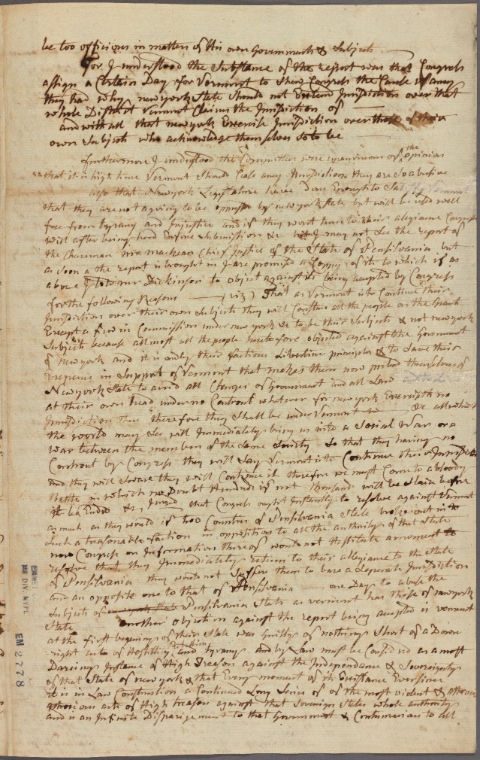 be too officious in matters of His own Government & Subjects
For I understood the Substance of the report was that Congress
assign a Certain Day for Vermont to Shew Congress the Cause if any
they had why newyork State Should not Extend Jurisdiction over that
whole District Vermont Claims the Jurisdiction of
and withall that newyork Exercise Jurisdiction over those of their
own Subjects who acknowledge themselves so to be
Furthermore I understood the Committee were unanimous of the opinian
that it is high time Vermont Should Cease any Jurisdiction they are
also that Newyork Legislature have Dun Enough to
that they are not agoing to be by newyork State but will be used well
free from tyrany and Injustice and if they wont have to their allegiance Congress
will after being heard Enforce Submission &c I may not See the report of
the Chairman Mr mackean Chief Justice of the State of Pensilvania but
as soon as the report is brought in I am promised a Copy of it to which if as
above I told mr Dickinson to object against its being accepted by Congress
for the following Reasons (viz) That as Vermont is to Continue their
Jurisdiction over their own Subjects they will Construe all the people on the
Except a few in Commission under new york &c to be their Subjects & not newyork
Subjects because all most all the people heretofore objected against the Government
of newyork and it is only their factious Libertine principles & to Save their
in Support of Vermont that makes them now pretend themselves of
Newyork State to avoid all Charges of Government and all Land
at their own head under no Controul whatever for newyork Exercises no
Jurisdiction therefore they Shall be under Vermont &c all which
the world may See will Immediately bring us into a Social War or a
War between the members of the Same Society So that they having no
Controul by Congress they will Say Vermont is to Continue their Jurisdiction
And they will Swear they will Continue it therefore we must Come to a bloody
Battle in which no Doubt Hundreds if not thousands will be Slain before
it be Ended &c I that Congress ought Instantly to resolve against Vermont
as much as they would if two Counties of Pensilvania State broke out in to
Such a treasonable faction in opposition to all the authority of that State
now Congress on Information thereof would not Hesitate a moment to
resolve that they Immediately return to their allegiance to the State
of Pensilvania they would not Suffer them to have a Seperate Jurisdiction
and an opposite one to that of Pensilvania one Day to abuse the
Subjects of Pensilvania State as vermont has those of newyork
State
another objection against the report being accepted is vermont
at the first beginning of their State was Guilty of nothing Short of a Down
right acts of Hostility and tyrany and by Law must be Confidered as a most
Dareing Instance of High Treason against the Independence & Sovereignty
of that State of newyork & that Every moment of its Existance Ever Since
it is in Law Construction a Continued Long Series of the most violent &
atrocious acts of High treason against that Sovereign State whole authority
and is an Infinite Disparigement to that Government &
EM 2778